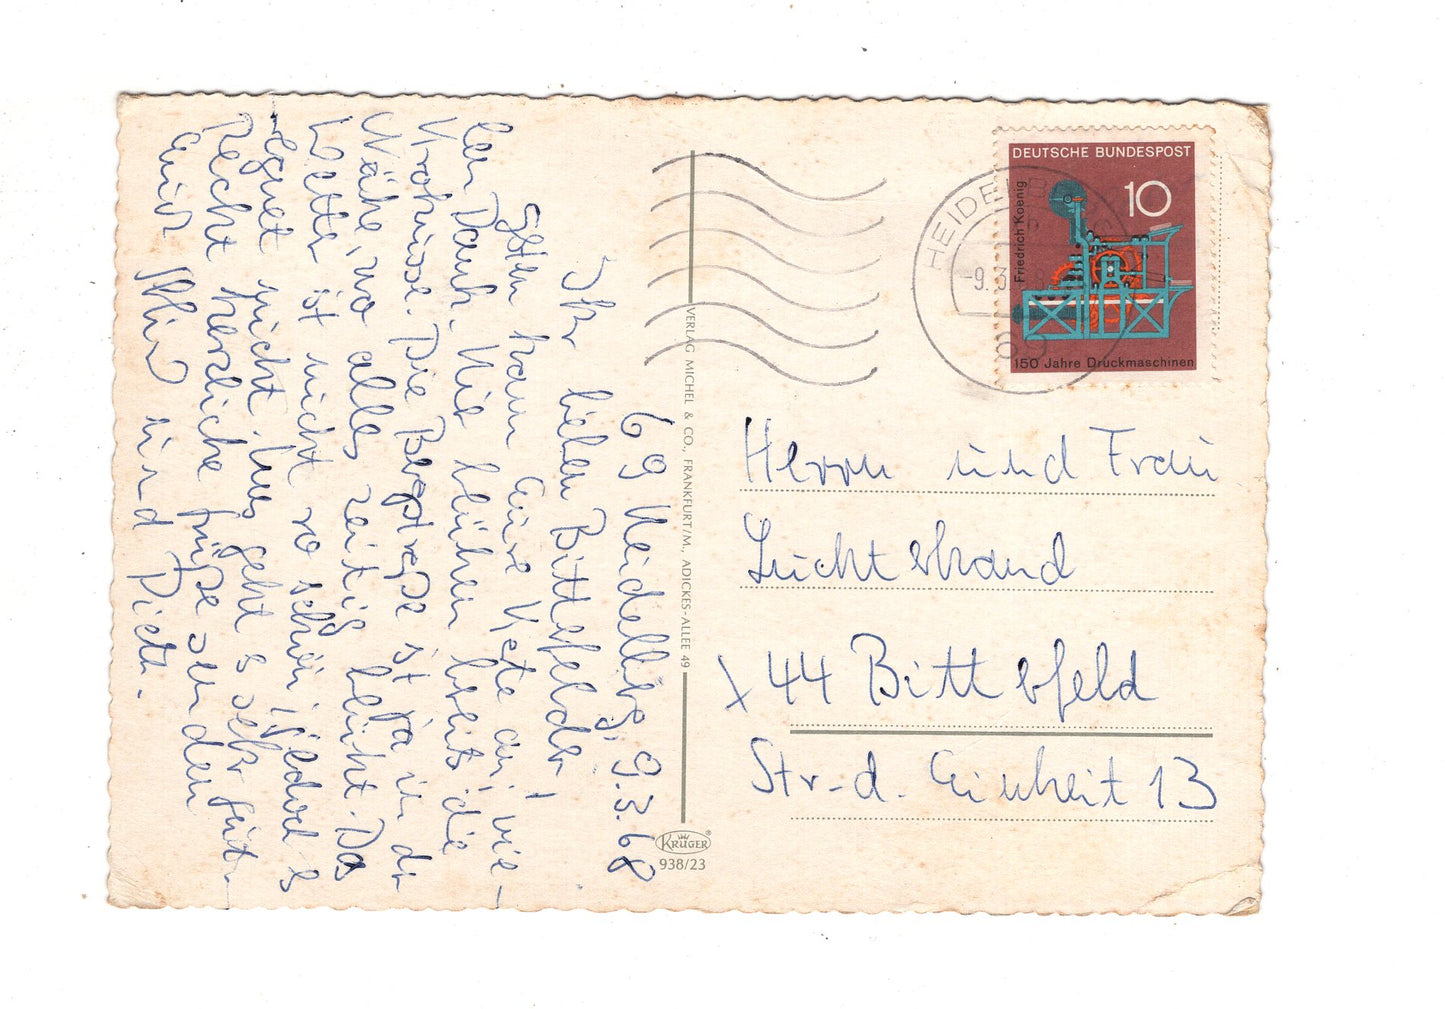 69 Heidelberg, 9.3.68
Ihr lieben Bitterfelder!
Gestern kam Eure Karte an, vie-
len Dank. Hier blühen bereits die
Krokusse. Die Bergstraße ist ja in der
Nähe, wo alles zeitig blüht. Das
Wetter ist nicht so schön, jedoch es
regnet nicht. Uns geht es sehr gut.
Recht herzliche Grüße senden
Euch und Dieter.
VERLAG MICHEL & CO., FRANKFURT/M., ADICKES-ALLEE 49
KRÜGER®
938/23
DEUTSCHE BUNDESPOST
10
Friedrich Koenig
150 Jahre Druckmaschinen
HEIDELB
-9.3
Herrn und Frau
Leichtskand
X 44 Bitterfeld
Str. d. Einheit 13